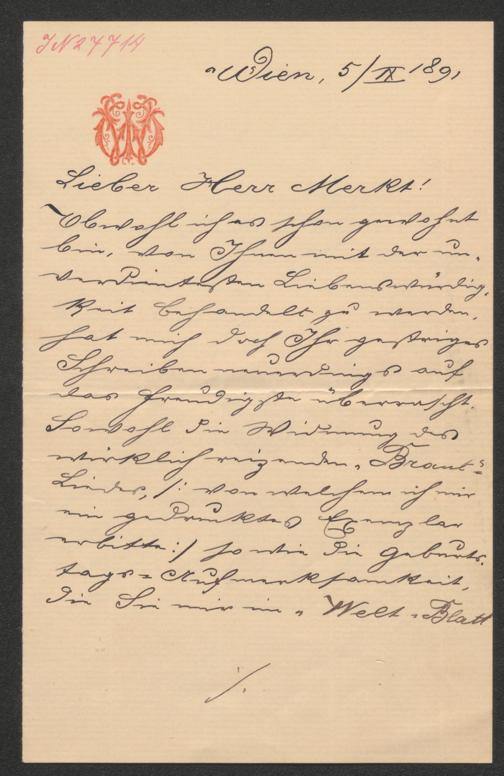 JN 27714
Wien, 5/IX 1891
Lieber Herr Merkt!
Obwohl ich es schon gewohnt
bin, von Ihnen mit der un-
verdientesten Liebenswürdig-
keit behandelt zu werden,
hat mich doch Ihr gestriges
Schreiben neuerdings auf
das freudigste überrascht.
Sowohl die Widmung des
wirklich reizenden „Braut-
Liedes, /: von welchem ich mir
ein gedrucktes Exemplar
erbitte :/ sowie die Geburts-
tags-Aufmerksamkeit,
die Sie mir im „Welt-Blatt
./.